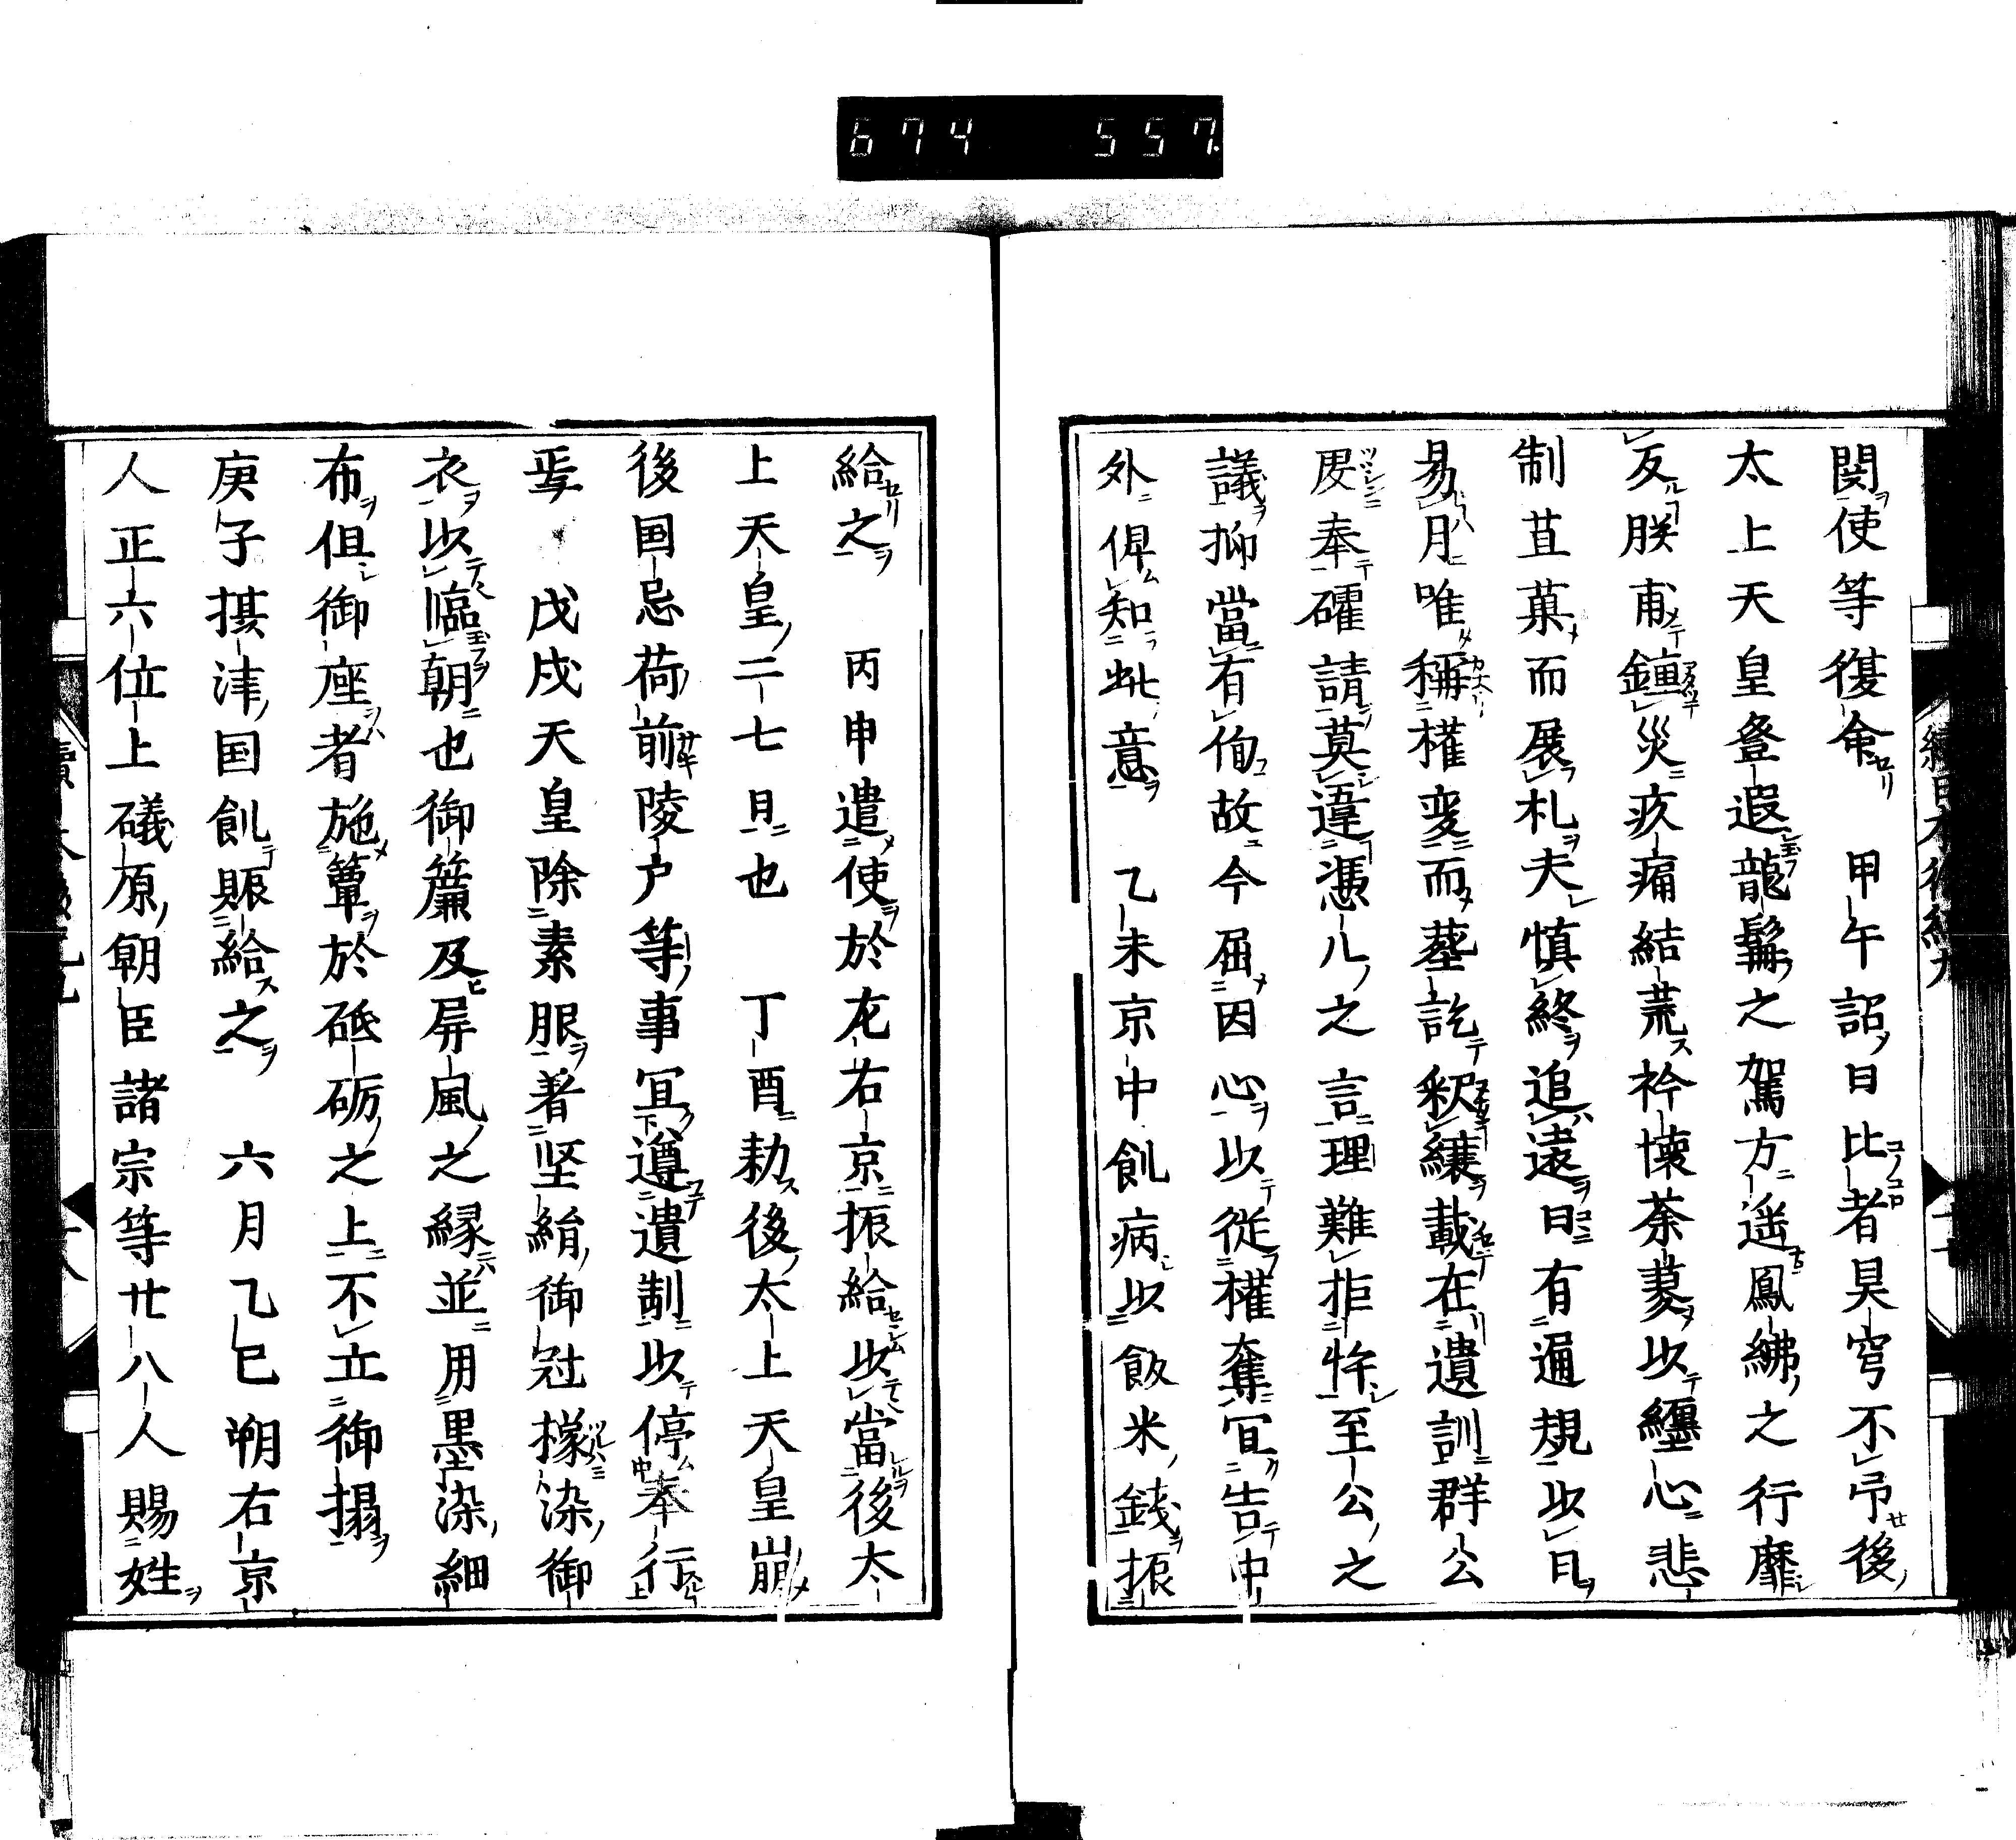 674 557
関使等復命 甲午詔曰比者昊穹不弔後
太上天皇登遐龍髯之駕方遥鳳綍之行靡
反朕甫鍾災疚痛結荒衿懐荼蓼以纒心悲
制苴菓而展札夫慎終追遠曰有通規以日
易月唯稱權変而塟訖釈縗載在遺訓群公
屡奉確請莫違憑几之言理難拒忤至公之
議抑當有徇故今屈因心以従權奪冝告中
外俾知此意 乙未京中飢病以飯米錢振
給之 丙申遣使於左右京振給以當後太
上天皇二七日也 丁酉勅後太上天皇崩
後国忌荷前陵戸等事冝遵遺制以停奉行
焉 戊戌天皇除素服著堅絹御冠橡染御
衣以臨朝也御簾及屏風之縁並用墨染細
布但御座者施簟於砥砺之上不立御搨
庚子摂津国飢賑給之 六月乙巳朔右京
人正六位上礒原朝臣諸宗等廿八人賜姓